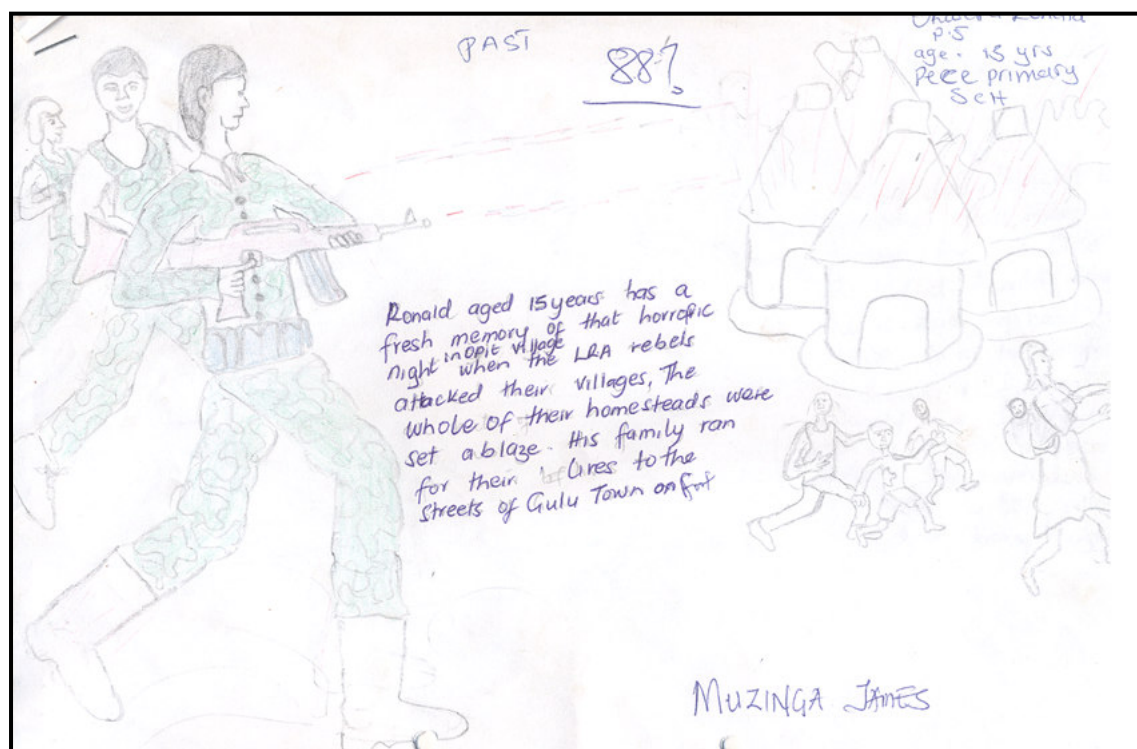 PAST
88%
P.5
age. 15 yrs
Pece primary
SCH
Ronald aged 15 years has a
fresh memory of that horrific
in opit village
night when the LRA rebels
attacked their villages. The
whole of their homesteads were
set ablaze. His family ran
for their lives to the
streets of Gulu Town on foot
MUZINGA JAMES